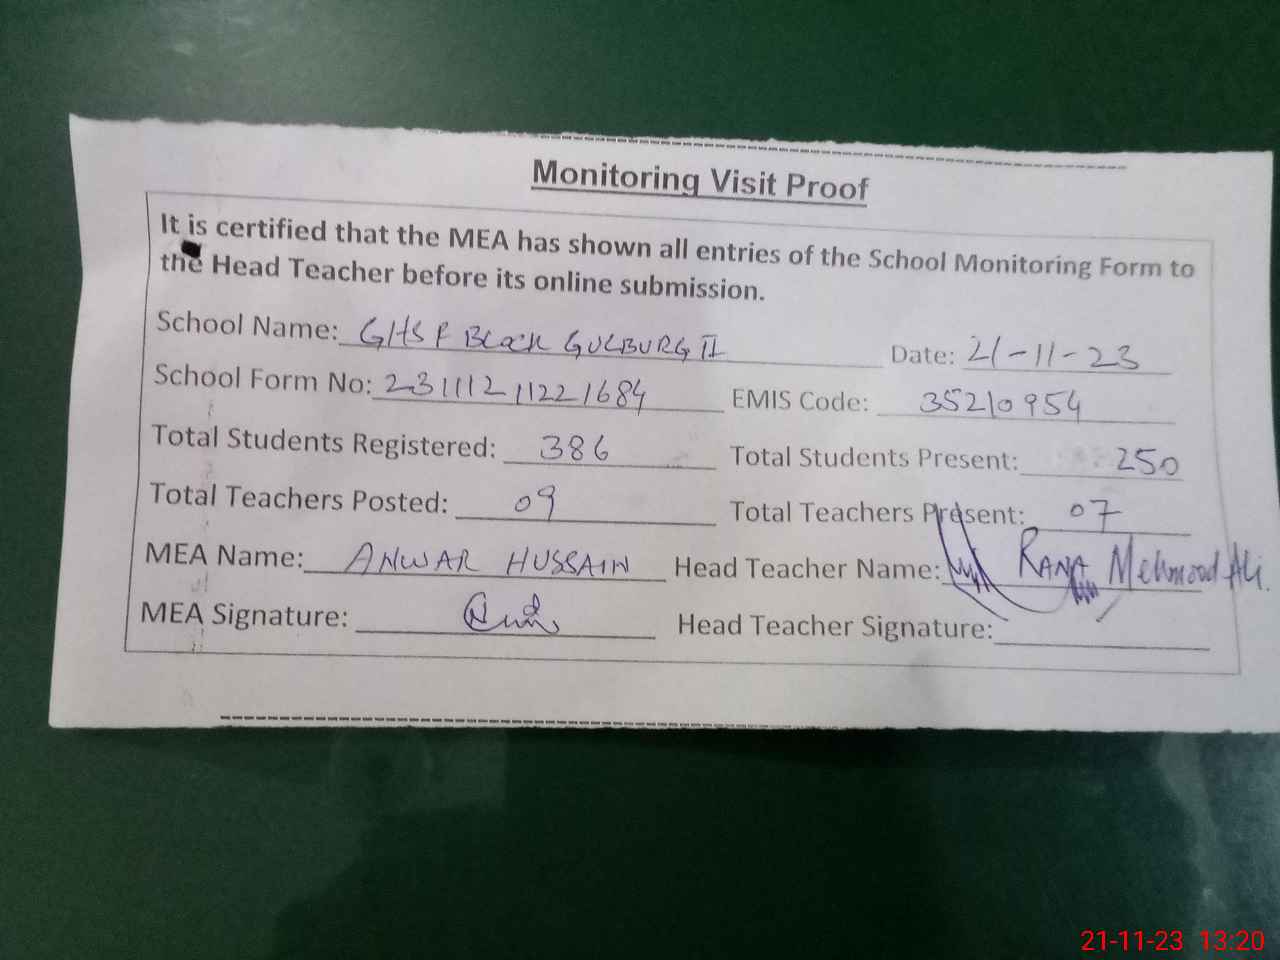 Monitoring Visit Proof
It is certified that the MEA has shown all entries of the School Monitoring Form to
the Head Teacher before its online submission.
School Name: GHS F BLOCK GULBURG II Date: 21-11-23
School Form No: 231112112 21684 EMIS Code: 35210954
Total Students Registered: 386 Total Students Present: 250
Total Teachers Posted: 09 Total Teachers Present: 07
MEA Name: ANWAR HUSSAIN Head Teacher Name: RANA Mehmood Ali.
MEA Signature: Head Teacher Signature:
21-11-23 13:20